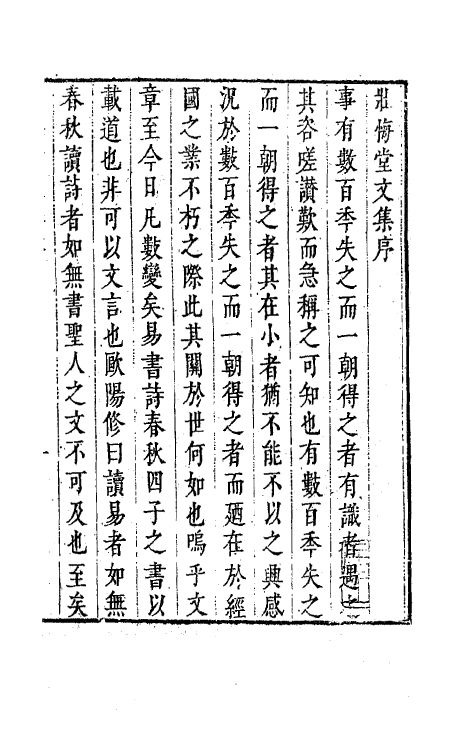 壯悔堂文集序
事有數百秊失之而一朝得之者有識者遇之
其咨嗟讃歎而急稱之可知也有數百秊失之
而一朝得之者其在小者猶不能不以之興感
況於數百秊失之而一朝得之者而廼在於經
國之業不朽之際此其關於世何如也嗚乎文
章至今日凡數變矣易書詩春秋四子之書以
載道也非可以文言也歐陽修曰讀易者如無
春秋讀詩者如無書聖人之文不可及也至矣